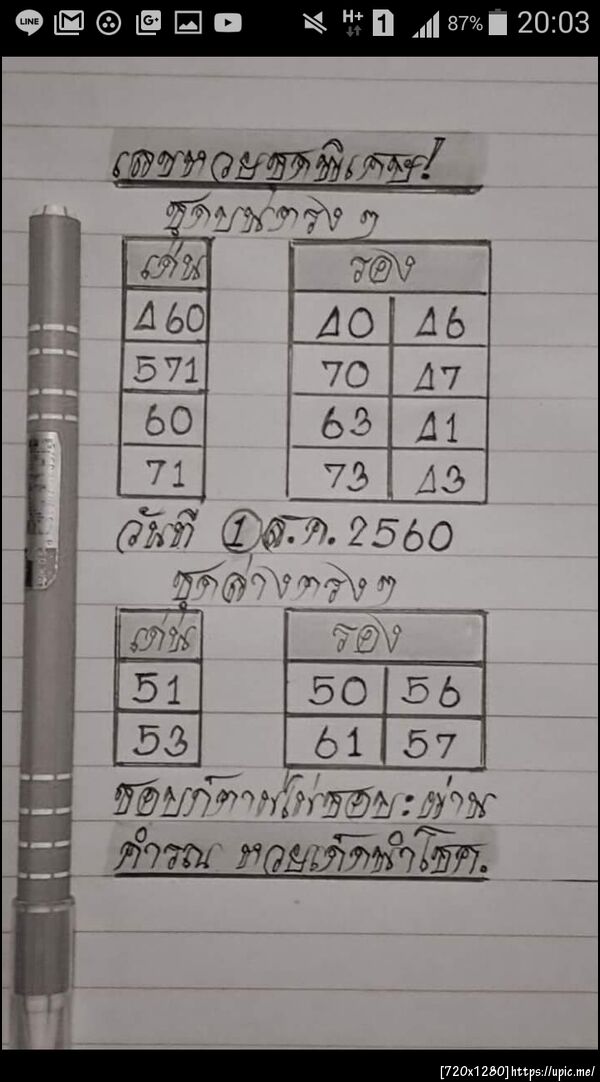 LINE H+ 1 87% 20:03
เลขหวยชุดพิเศษ!
ชุดบนตรงๆ
เด่น รอง
Δ60 Δ0 Δ6
571 70 Δ7
60 63 Δ1
71 73 Δ3
วันที่ 1 ส.ค. 2560
ชุดล่างตรงๆ
เด่น รอง
51 50 56
53 61 57
ชอบก็ตามไม่ชอบ: ผ่าน
หวยเด็ดนำโชค.
[720x1280]https://upic.me/